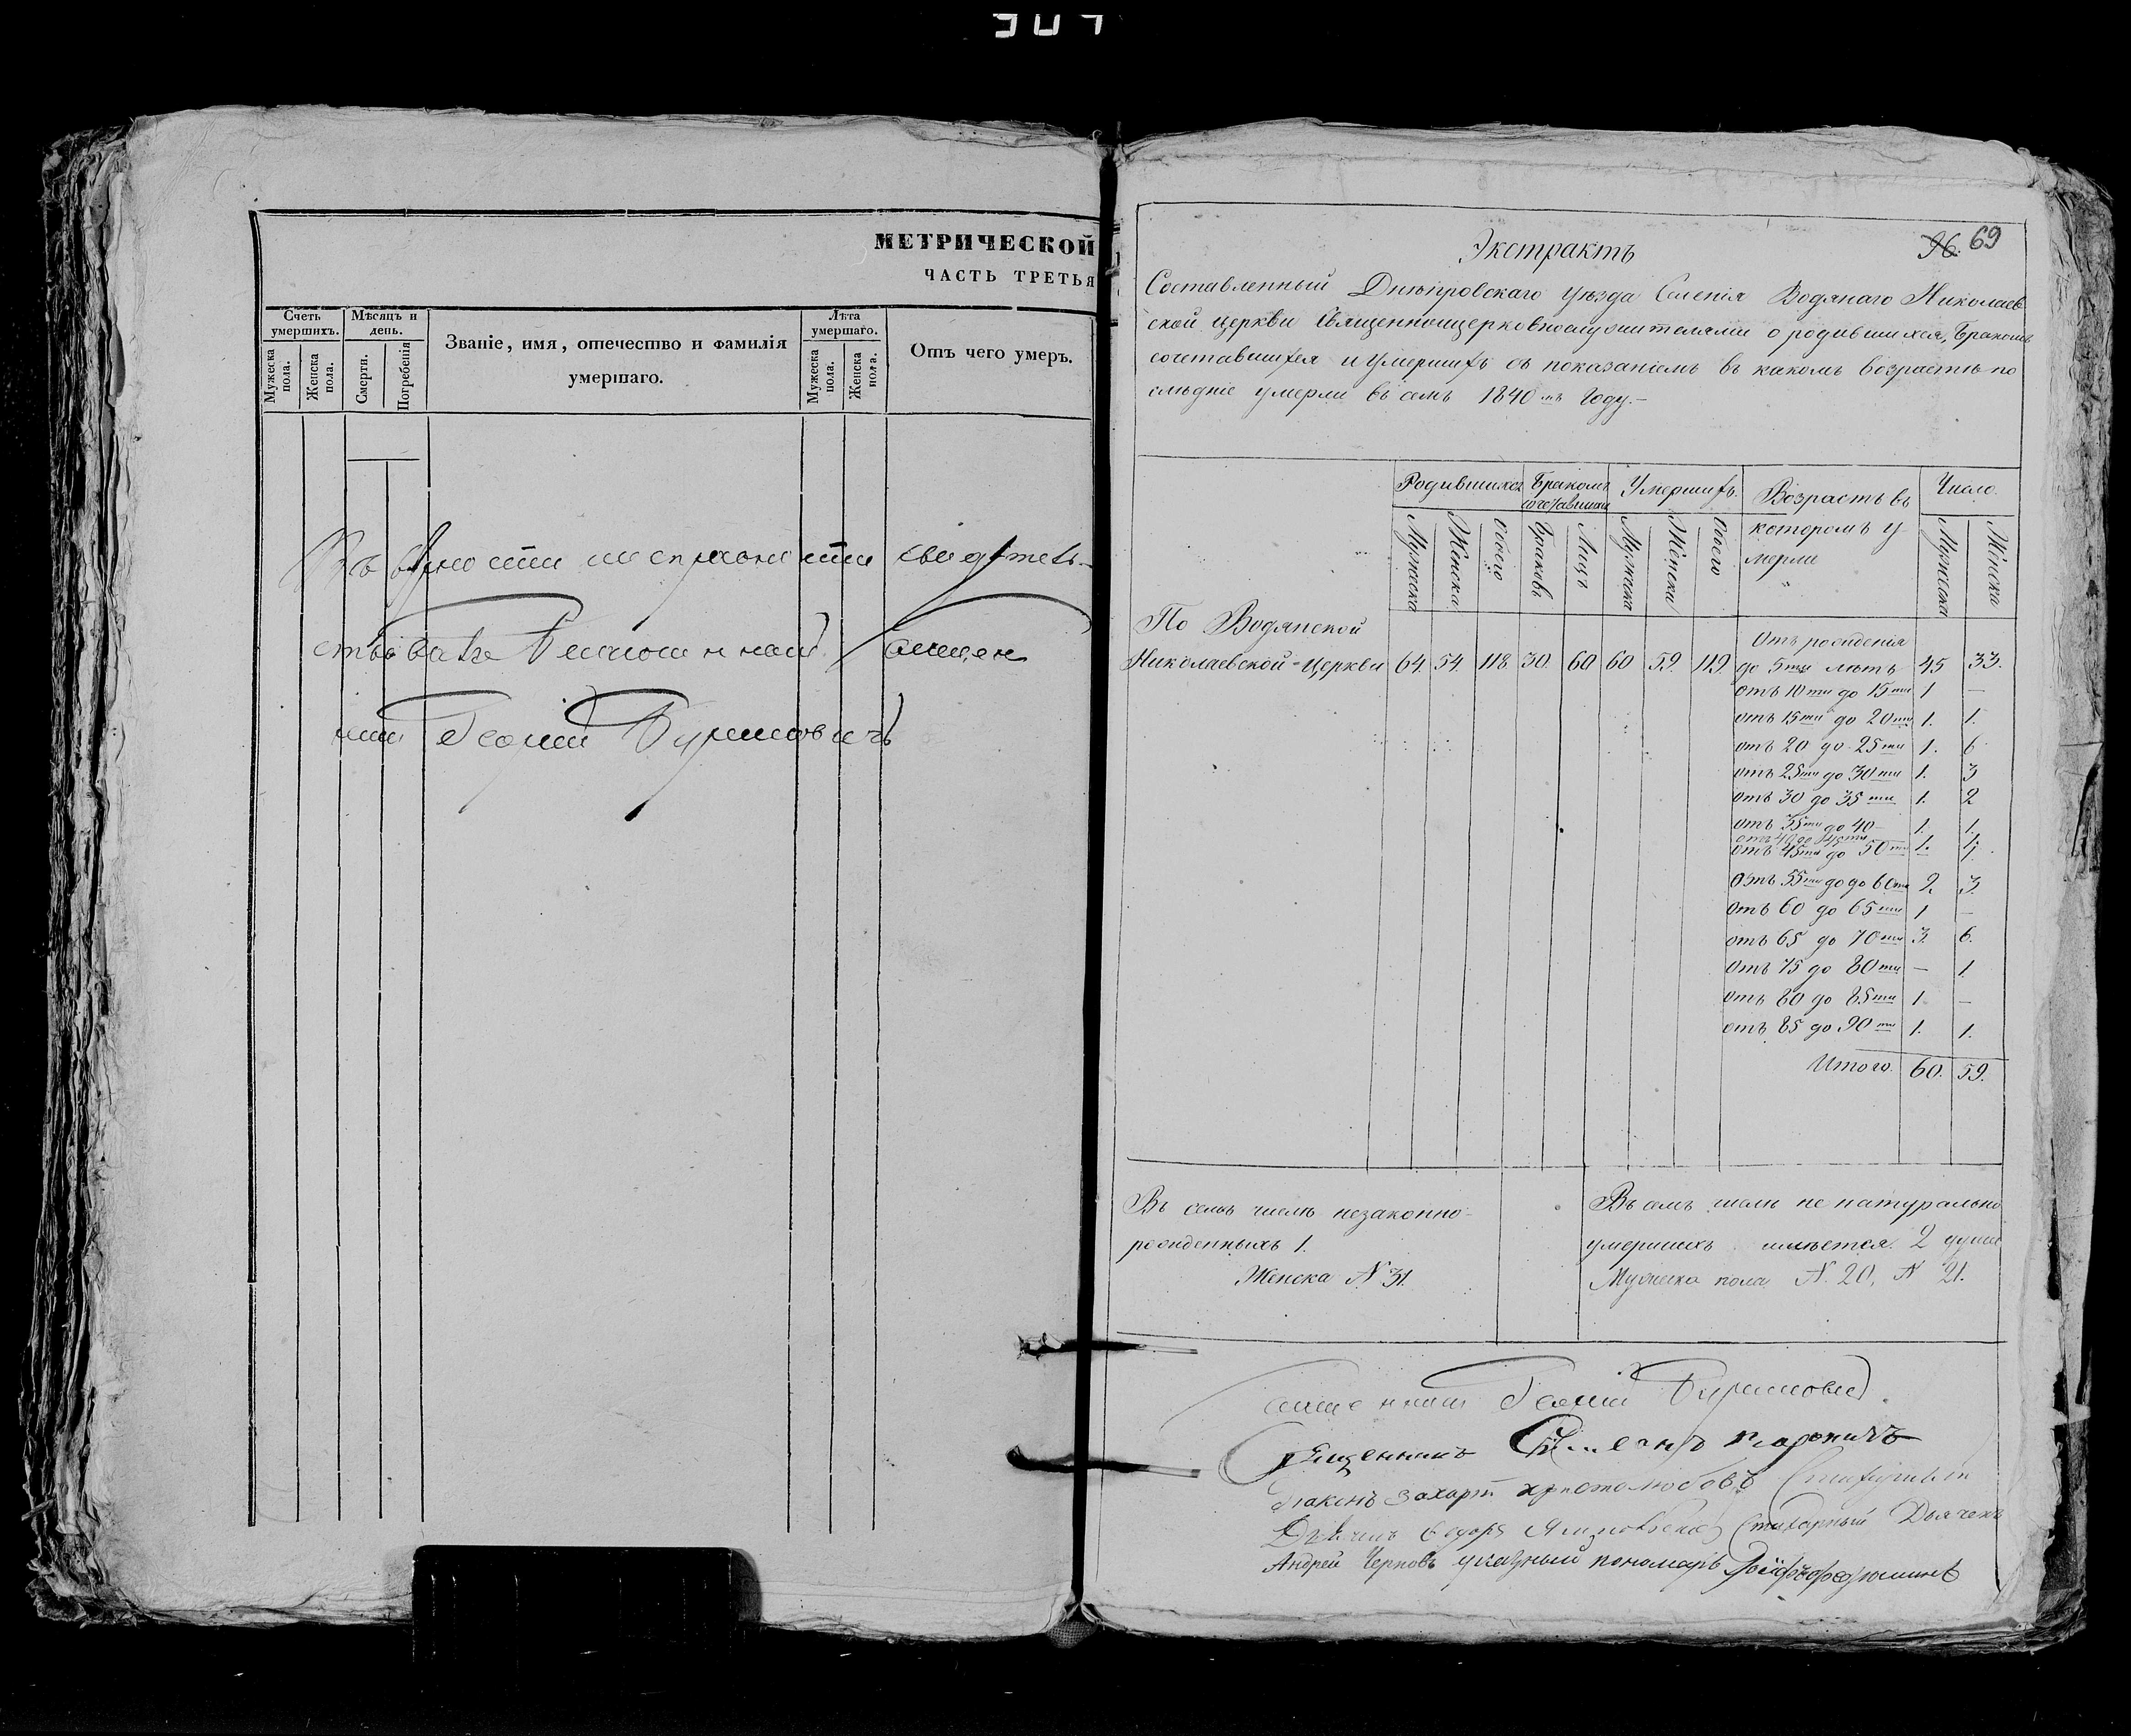 307
МЕТРИЧЕСКОЙ
ЧАСТЬ ТРЕТЬЯ
Счетъ умершихъ.
Мѣсяцъ и день.
Званіе, имя, отечество и фамилія умершаго.
Лѣта умершаго.
Отъ чего умеръ.
Мужеска пола.
Женска пола.
Смерти.
Погребенія
Мужеска пола.
Женска пола.
Георгій
69
Экстрактъ
Составленный Днѣпровскаго уѣзда Селенія Водянаго Николаев
ской церкви Священноцерковнослужителями о родившихся, бракомъ
сочетавшихся и умершихъ съ показаніемъ въ какомъ возрастѣ по
слѣдніе умерли въ семъ 1840мъ Году.-
Родившихся
Бракомъ сочетавшихся
Умершихъ.
Возрастъ въ которомъ умерли
Число.
Мужеска
Женска
обоего
Браковъ
Лицъ
Мужеска
Женска
обоего
Мужеска
Женска
По Водянской
Николаевской Церкви 64. 54. 118. 30. 60 60 59. 119.
Отъ рожденія
до 5ти лѣтъ 45 33.
отъ 10ти до 15ти 1 —
отъ 15ти до 20ти 1. 1.
отъ 20 до 25ти 1. 6
отъ 25ти до 30ти 1. 3
отъ 30 до 35ти 1. 2
отъ 35ти до 40 1. 1.
отъ 40 до 45ти
отъ 45ти до 50ти
отъ 55ти до до 60ти 2 3.
отъ 60 до 65ти 1 —
отъ 65 до 70ти 3. 6.
отъ 75 до 80ти — 1
отъ 80 до 85ти 1 —
отъ 85 до 90ти 1. 1.
Итого. 60. 59.
Въ семъ числѣ незаконно-
рожденныхъ 1.
Женска N 31.
Въ семъ числѣ не натурально
умершихъ имѣется 2 души
Мужеска пола N. 20, N 21.
Священникъ
Діаконъ Захарій Христолюбовъ
Стихарный Дьячекъ
Андрей Черновъ указный пономарь